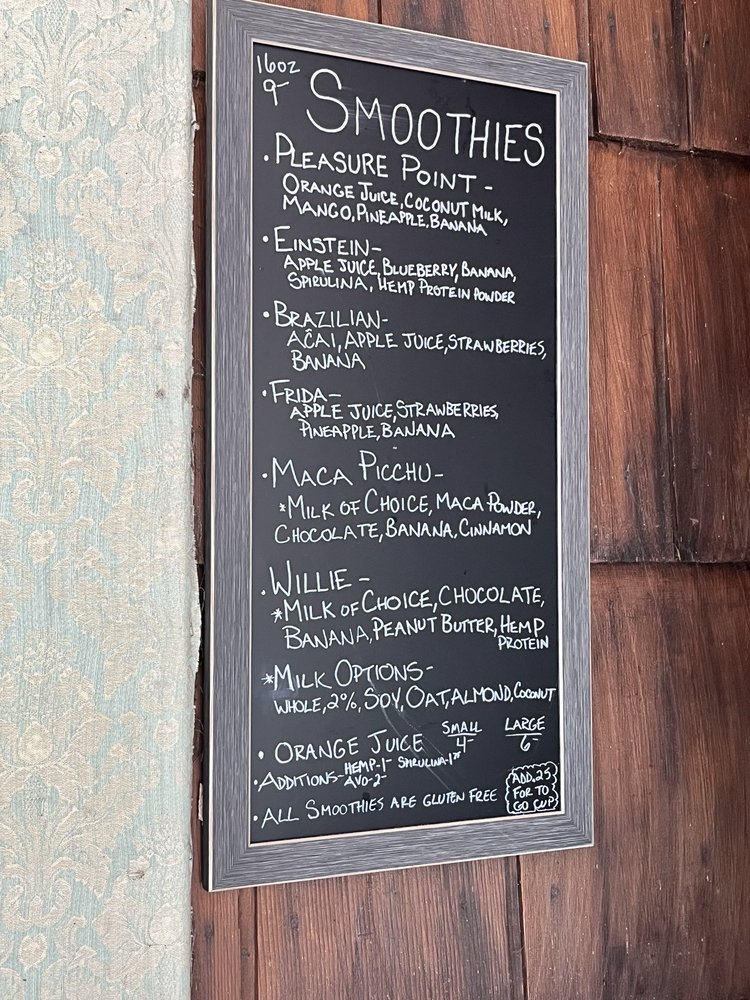 16oz
9-
SMOOTHIES
• PLEASURE POINT -
ORANGE JUICE, COCONUT MILK,
MANGO, PINEAPPLE, BANANA
• EINSTEIN -
APPLE JUICE, BLUEBERRY, BANANA,
SPIRULINA, HEMP PROTEIN POWDER
• BRAZILIAN -
AÇAI, APPLE JUICE, STRAWBERRIES,
BANANA
• FRIDA -
APPLE JUICE, STRAWBERRIES,
PINEAPPLE, BANANA
• MACA PICCHU -
*MILK OF CHOICE, MACA POWDER,
CHOCOLATE, BANANA, CINNAMON
• WILLIE -
*MILK OF CHOICE, CHOCOLATE,
BANANA, PEANUT BUTTER, HEMP
PROTEIN
*MILK OPTIONS -
WHOLE, 2%, SOY, OAT, ALMOND, COCONUT
• ORANGE JUICE SMALL 4- LARGE 6-
• ADDITIONS - HEMP-1- SPIRULINA-
AVO-2-
• ALL SMOOTHIES ARE GLUTEN FREE
ADD .25
FOR TO
GO CUP